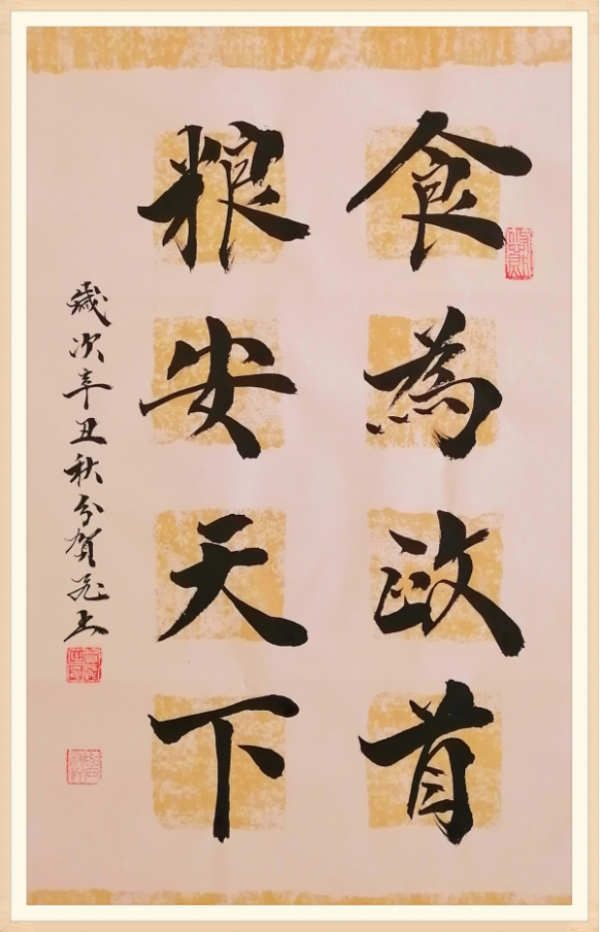 食為政首
粮安天下
歲次辛丑秋分賀